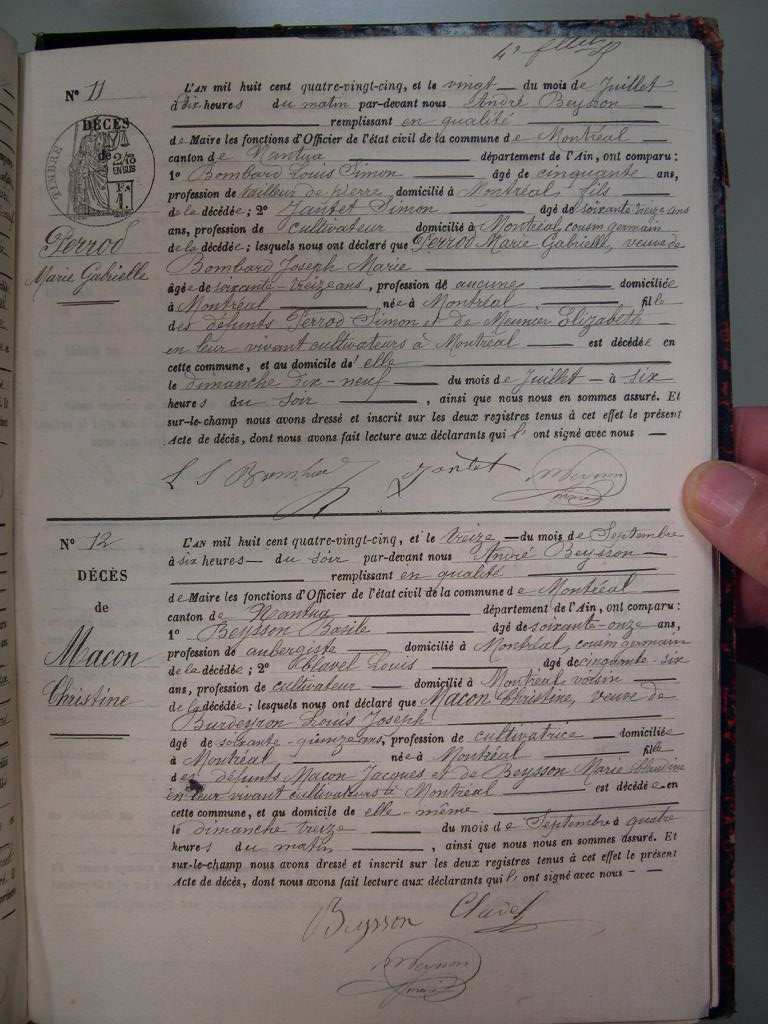 4e feuillet
N° 11
DÉCÈS
de
TIMBRE
2/10
EN SUS
1F
Perrod
Marie Gabrielle
L'AN mil huit cent quatre-vingt-cinq, et le vingt — du mois de Juillet
à six heures du matin par-devant nous André Beysson
remplissant en qualité
de Maire les fonctions d'Officier de l'état civil de la commune de Montréal
canton de Nantua département de l'Ain, ont comparu :
1° Bombard Louis Simon âgé de cinquante ans,
profession de tailleur de pierre domicilié à Montréal fils
de la décédée ; 2° Jantet Simon âgé de soixante treize ans
ans, profession de cultivateur domicilié à Montréal, cousin germain
de la décédée ; lesquels nous ont déclaré que Perrod Marie Gabrielle, veuve de
Bombard Joseph Marie
âgée de soixante-treize ans, profession de aucune domiciliée
à Montréal née à Montréal fille
des défunts Perrod Simon et de Meunier Elizabeth
en leur vivant cultivateurs à Montréal est décédée en
cette commune, et au domicile d'elle
le dimanche dix-neuf du mois de Juillet — à six
heures du soir, ainsi que nous nous en sommes assuré. Et
sur-le-champ nous avons dressé et inscrit sur les deux registres tenus à cet effet le présent
Acte de décès, dont nous avons fait lecture aux déclarants qui l' ont signé avec nous —
L S Bombard Jantet Beysson
maire
N° 12
DÉCÈS
de
Macon
Christine
L'AN mil huit cent quatre-vingt-cinq, et le treize, — du mois de Septembre
à six heures — du soir par-devant nous André Beysson
remplissant en qualité
de Maire les fonctions d'Officier de l'état civil de la commune de Montréal
canton de Nantua département de l'Ain, ont comparu :
1° Beysson Basile âgé de soixante-onze ans,
profession de aubergiste domicilié à Montréal, cousin germain
de la décédée ; 2° Clavel Louis, âgé de cinquante-six
ans, profession de cultivateur domicilié à Montréal voisin
de la décédée ; lesquels nous ont déclaré que Macon Christine, veuve de
Burdeyron Louis Joseph
âgé de soixante-quinze ans, profession de cultivatrice domiciliée
à Montréal née à Montréal fille
des défunts Macon Jacques et de Beysson Marie Claudine
en leur vivant cultivateurs à Montréal est décédée en
cette commune, et au domicile de elle-même
le dimanche treize du mois de Septembre à quatre
heures du matin, ainsi que nous nous en sommes assuré. Et
sur-le-champ nous avons dressé et inscrit sur les deux registres tenus à cet effet le présent
Acte de décès, dont nous avons fait lecture aux déclarants qui l' ont signé avec nous — —
Beysson Clavel
Beysson
maire